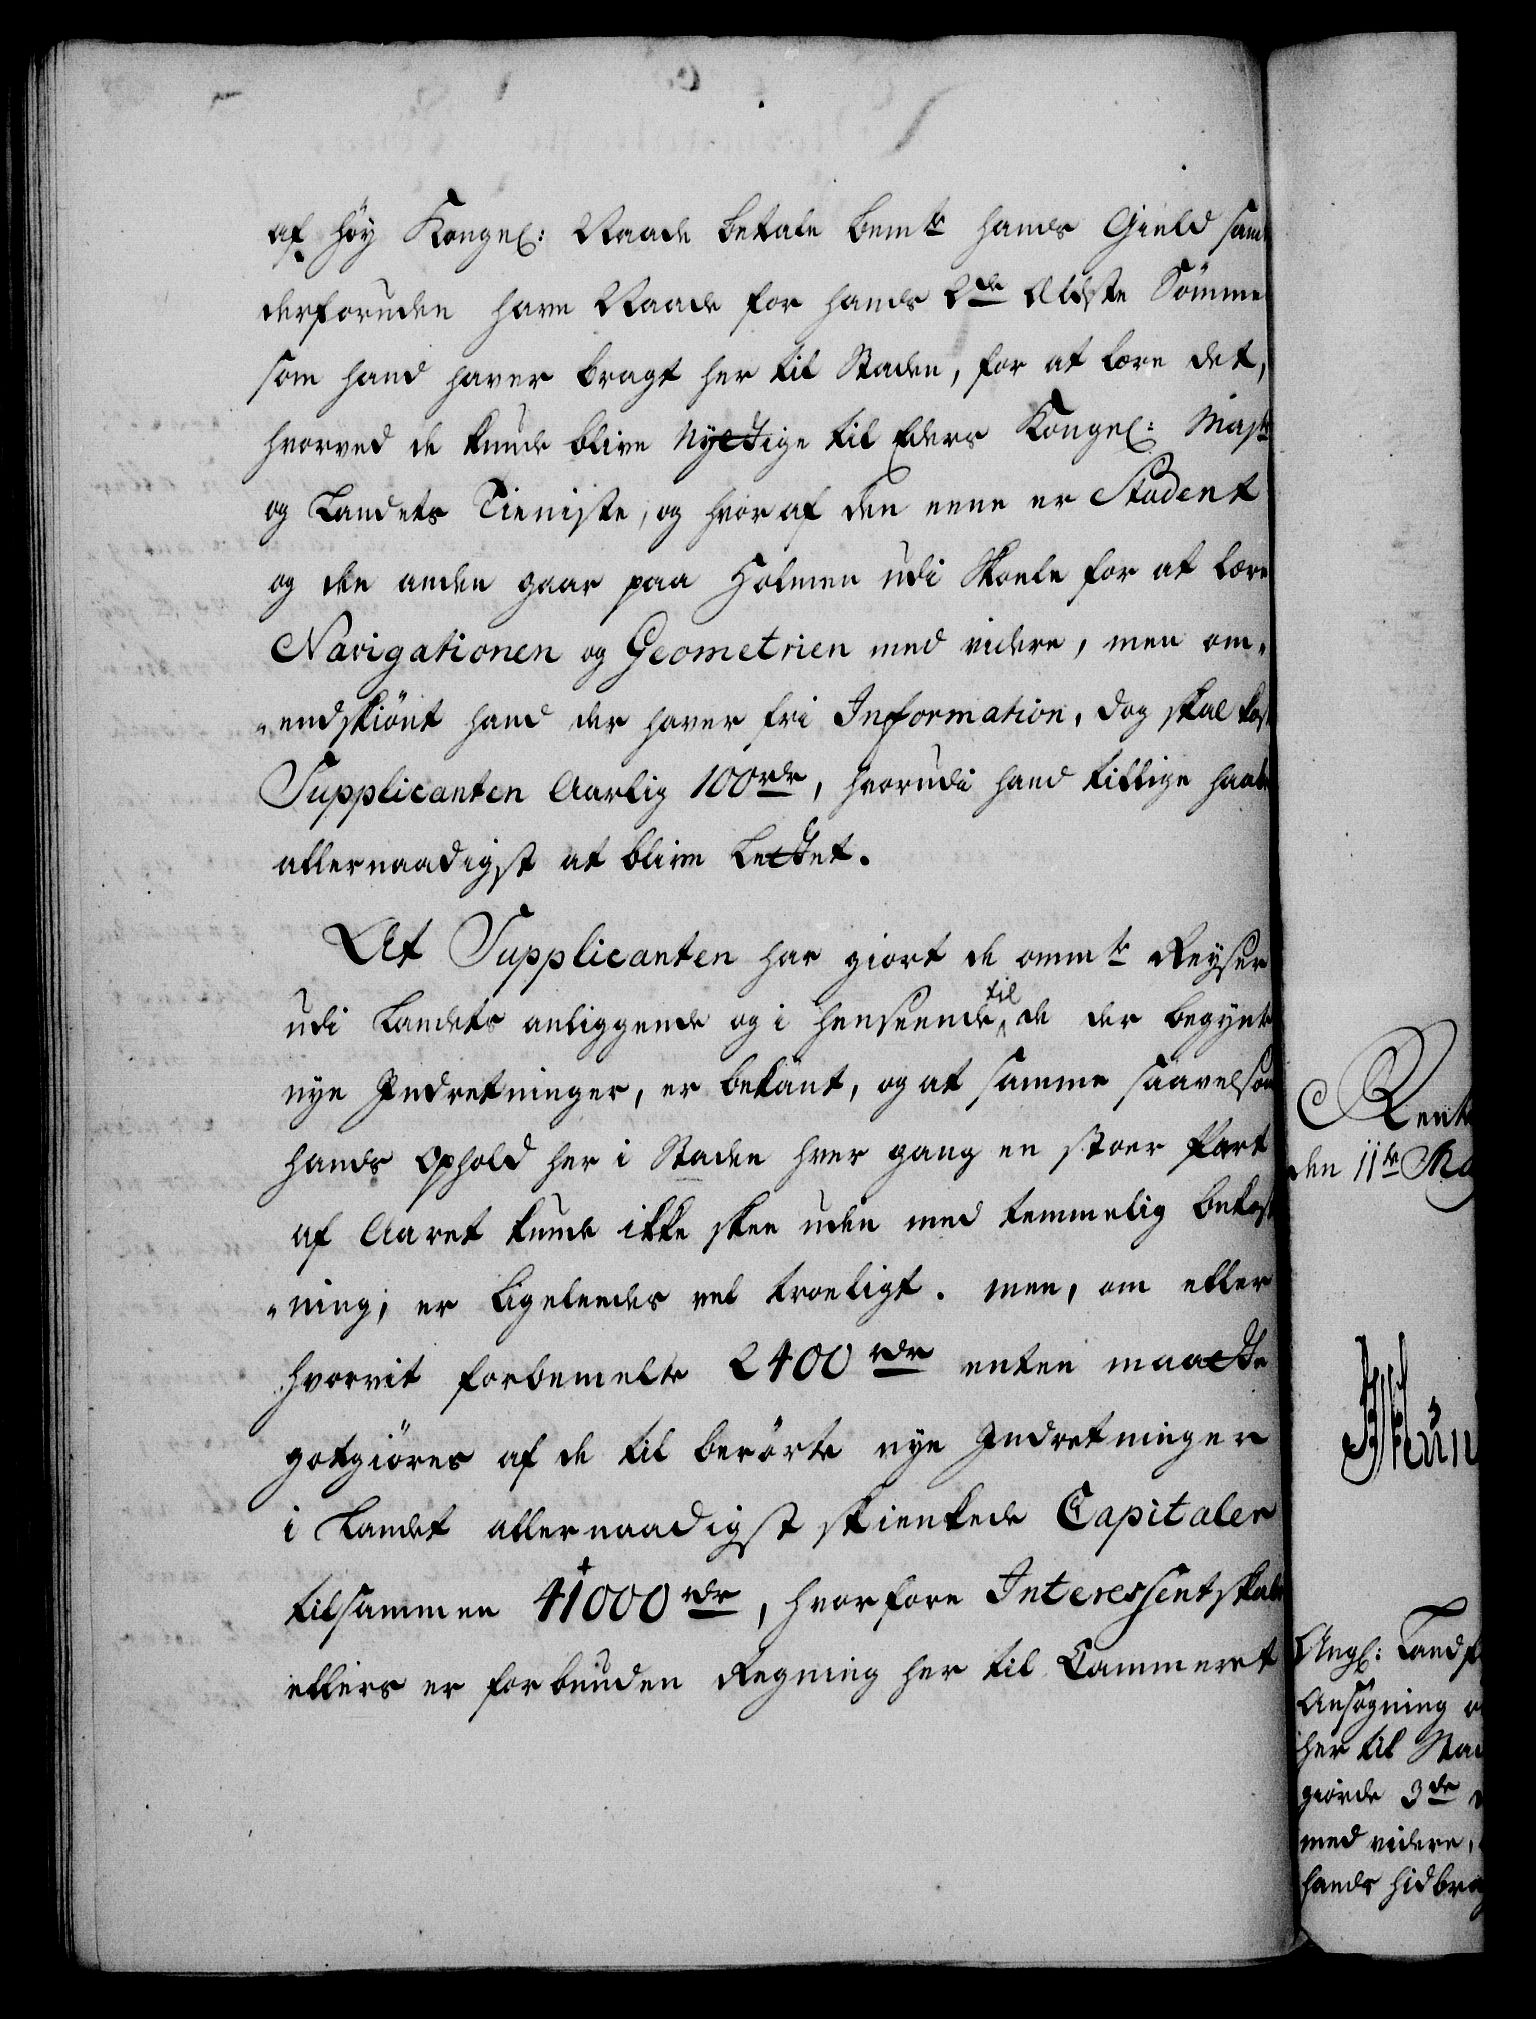 af høy Kongel: Naade betale bemte hands Gield samt
derforuden have Naade for hands 2de Ældste Sønner
som hand haver bragt her til Staden, for at lære det,
hvorved de kunde blive Nyttige til Eders Kongel: Majts
og Landets Tieniste, og hvor af den eene er Student
og den anden gaar paa Holmen udi Skoele for at lære
Navigationen og Geometrien med videre, men om-
-endskiönt hand der haver fri Information, dog skal koste
Supplicanten Aarlig 100 rdr, hvorudi hand tillige haaber
allernaadigst at blive lettet.
At Supplicanten har giort de ommte Reyser
udi Landets anliggende og i henseende til de der begynte
nye Indretninger, er bekant, og at samme saavelsom
hands Ophold her i Staden hver gang en stoer Part
af Aaret kunde ikke skee uden med temmelig bekost
-ning, er ligeledes vel troeligt. men, om eller
hvorvit forbemelte 2400 rdr enten maatte
gotgiöres af de til berörte nye Indretninger
i Landet allernaadigst skienkede Capitaler
tilsammen 41000 rdr, hvorfore Interessentskabet
ellers er forbunden Regning her til Cammeret
Rente
den 11te Ma
Angl: Landf
Ansögning o
her til Sta
giorde 3de
med videre,
hands hidbrag